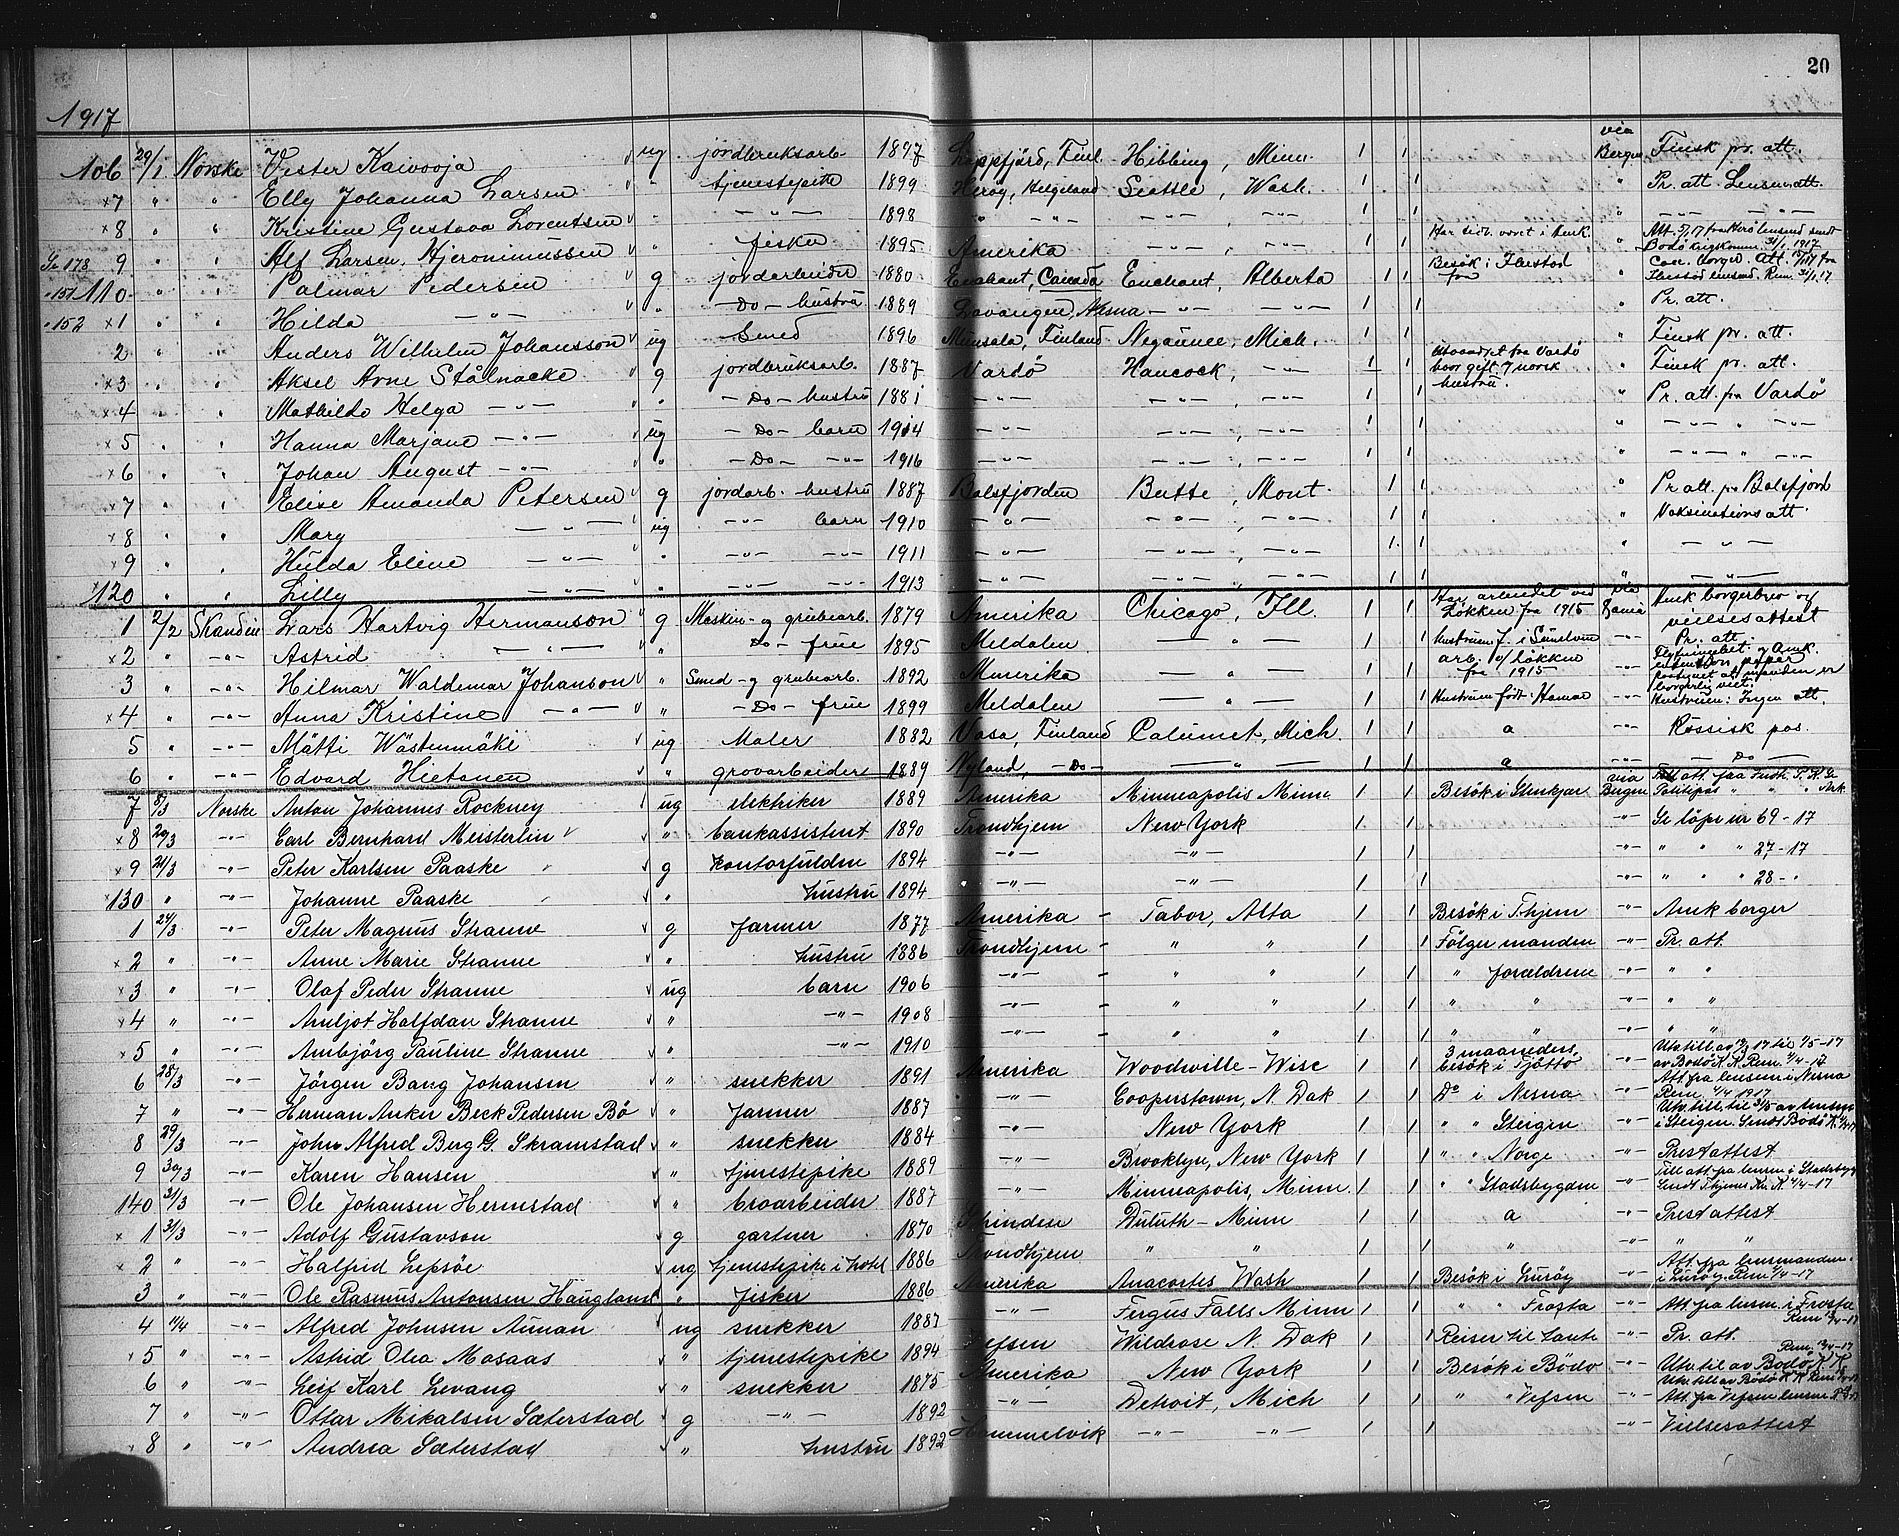 20
1917
106 29/1 Norske Vester Kaivooja ug jordbruksarb. 1897 Lappfjärd, Finl. Hibbing, Minn. 1 1 via Bergen Finsk pr. att.
×7 " " Elly Johanna Larsen " tjenestepike 1899 Herøy, Helgeland Seattle, Wash. 1 1 " Pr. att. Lensm. att.
×8 " " Kristine Gustava Lorentsen " —"— 1898 " —"— —"—, —"— 1 1 " —"— —"—
9 " " Alf Larsen Hjeronimussen " fisker 1895 Amerika —"—, —"— 1 1 Har tidl. været i Amk. "
151 110 " " Palmar Pedersen g jordarbeider 1880 Enchant, Canada Enchant, Alberta 1 1 Besök i Ibestad "
152 ×1 " " Hilda —"— " —Do— hustru 1889 Lavangen, —"— —"— 1 1 " Pr. att.
2 " " Anders Wilhelm Johansson ug Smed 1896 Munsala, Finland Negaunee, Mich. 1 1 " Finsk pr. att.
×3 " " Aksel Arne Stålnacke g jordbruksarb. 1887 Vardö Hancock, —"— 1 1 Utvandret fra Vardö hvor gift. 7 norsk hustru. " Finsk pr. att.
×4 " " Mathilde Helga —"— " —Do— hustru 1881 —"— —"—, —"— 1 1 " Pr. att. fra Vardö
×5 " " Hanna Marjane —"— ug —Do— barn 1914 —"— —"—, —"— 1 1 " —"— " —"—
×6 " " Johan August —"— " —Do— —"— 1916 —"— —"—, —"— 1 1 " —"— " —"—
×7 " " Elise Amanda Petersen g jordarb. hustru 1887 Balsfjorden Butte, Mont. 1 1 " Pr. att. fra Balsfjord
×8 " " Mary —"— ug —"— barn 1910 —"— —"—, —"— 1 1 " Vaksinations att.
×9 " " Hulda Eline —"— " —"— —"— 1911 —"— —"—, —"— 1 1 " —"—
×120 " " Lilly —"— " —"— —"— 1913 —"— —"—, —"— 1 1 " —"—
1 2/2 Skandin Lars Hartvig Hermanson g Maskin- og grubearb. 1879 Amerika Chicago, Ill. 1 1 Har arbeidet ved Løkken fra 1915 via Amk borgerbrev og vielsesattest
×2 " —"— Astrid —"— " Do— frue 1895 Meldalen — " — 1 1 —"— Pr. att.
3 " —"— Hilmar Waldemar Johanson " Smed- og grubearb. 1892 Amerika — " — 1 1 arb. v/ Løkken fra 1915 —"—
×4 " —"— Anna Kristine —"— " —Do— frue 1899 Meldalen — " — 1 1 Hustruen född: Hamar —"— Hustruen: Ingen att.
5 " —"— Mätti Wästenmäki ug Maler 1882 Vasa, Finland Calumet, Mich. 1 1 a —"— Russisk pas.
6 " —"— Edvard Hietanen " grovarbeider 1889 Nyland, —Do— — " — 1 1 a —"— —Do—
7 8/3 Norske Anton Johannes Rockney ug elektriker 1889 Amerika Minneapolis Minn 1 1 Besök i Stenkjær via Bergen
×8 20/3 —"— Carl Bernhard Meisterlin " bankassistent 1890 Trondhjem New York 1 1 —"— Se löpe nr 69-17
×9 21/3 —"— Peter Karlsen Paaske g kontorfuldm 1894 —"— —"— 1 1 —"— " " " 27-17
×130 " —"— Johanne Paaske " hustru 1894 —"— —"— 1 1 —"— " " " 28-"
1 24/3 —"— Peter Magnus Stranne g farmer 1877 Amerika — Tabor, Alta 1 1 Besök i T.hjem —"— Amk borger
×2 " —"— Anne Marie Stranne " hustru 1886 Trondhjem — " " 1 1 Fölger manden —"— Pr. att.
×3 " —"— Olaf Peder Stranne ug barn 1906 —"— — " " 1 1 " forældrene —"— " "
×4 " —"— Arnljot Halfdan Stranne " —"— 1908 —"— — " " 1 1 " " —"— " "
×5 " —"— Ambjörg Pauline Stranne " —"— 1910 —"— — " " 1 1 " " —"— " "
6 28/3 —"— Jörgen Bang Johansen " snekker 1891 Amerika Woodville — Wisc 1 1 3 maaneders besök i Tjöttö —"— Utv. till av 17/3 17 til 1/5-17 av Bodö K.K. Rem. 4/4-17
7 " —"— Herman Anker Beck Pedersen Bö " farmer 1887 —"— Cooperstown, N. Dak 1 1 Do i Nesna —"— Att. fra lensm i Nesna Rem. 4/4 1917
8 29/3 —"— John Alfred Berg G. Skramstad " snekker 1884 —"— New York 1 1 " " Steigen —"—
9 30/3 —"— Karen Hansen " tjenestepike 1889 —"— Brooklyn, New York 1 1 " " Norge —"— Prestattest
140 31/3 —"— Ole Johansen Hermstad " broarbeider 1887 —"— Minneapolis, Minn. 1 1 " " Stadsbygden —"— Till att. fra lensm i Stadsbygd
×1 31/3 —"— Adolf Gustavson g gartner 1870 Duluth — Minn 1 1 a —"— Prestattest
×2 " —"— Halfrid Lepsöe ug tjenestepike i hotel 1886 Trondhjem " " 1 1 " —"— " "
3 " —"— Ole Rasmus Antonsen Haugland " fisker 1886 Amerika Anacortes Wash 1 1 Besök i Luröy —"— Att. fra lensmanden i Luröy. Rem 4/4-17
4 11/4 —"— Alfred Johnsen Auman ug snekker 1887 —"— Fergus Falls Minn 1 1 " " Frosta —"— Att. fra lensm. i Frosta
×5 " —"— Astrid Olea Mosaas " tjenestepike 1894 Vefsen Wildrose N. Dak 1 1 Reiser til tante —"— Pr. att.
6 " —"— Leif Karl Levang " snekker 1875 Amerika New York 1 1 Besök i Bodö —"— Utv. til av Bodö K.K.
7 " —"— Ottar Mikalsen Sæterstad g —"— 1892 —"— Detroit, Mich 1 1 " " Vefsen —"—
×8 " —"— Andrea Sæterstad " hustru 1892 Hommelvik —"— —"— 1 1 —"— Vielsesattest